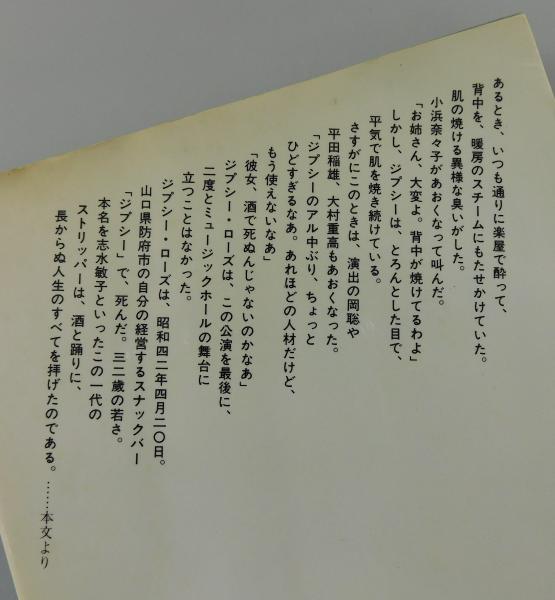 あるとき、いつも通りに楽屋で酔って、
背中を、暖房のスチームにもたせかけていた。
肌の焼ける異様な臭いがした。
小浜奈々子があおくなって叫んだ。
「お姉さん、大変よ。背中が焼けてるわよ」
しかし、ジプシーは、とろんとした目で、
平気で肌を焼き続けている。
さすがにこのときは、演出の岡聡や
平田稲雄、大村重高もあおくなった。
「ジプシーのアル中ぶり、ちょっと
ひどすぎるなあ。あれほどの人材だけど、
もう使えないなあ」
「彼女、酒で死ぬんじゃないのかなあ」
ジプシー・ローズは、この公演を最後に、
二度とミュージックホールの舞台に
立つことはなかった。
ジプシー・ローズは、昭和四二年四月二〇日。
山口県防府市の自分の経営するスナックバー
「ジプシー」で、死んだ。三二歳の若さ。
本名を志水敏子といったこの一代の
ストリッパーは、酒と踊りに、
長からぬ人生のすべてを拝げたのである。……本文より